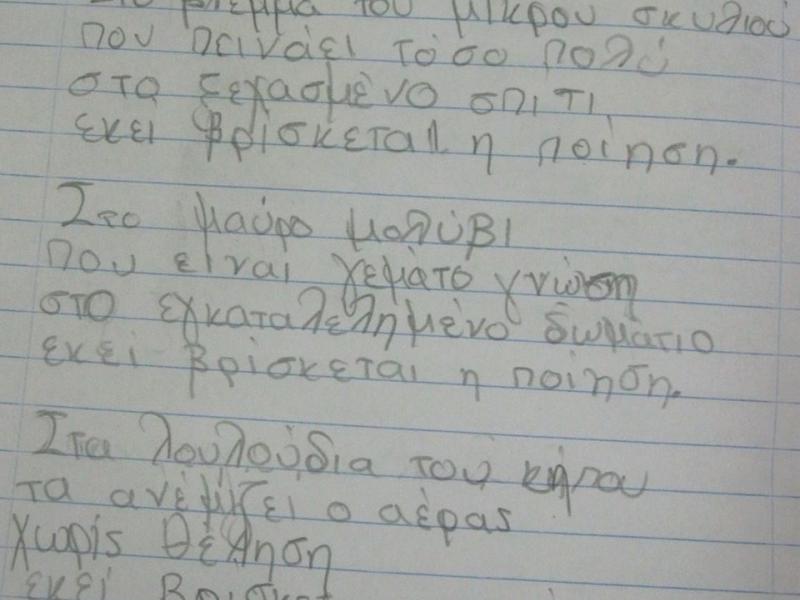 Στο βλέμμα του μικρού σκυλιού
που πεινάει τόσο πολύ
στο ξεχασμένο σπίτι
εκεί βρίσκεται η ποίηση.
Στο μαύρο μολύβι
που είναι γεμάτο γνώση
στο εγκαταλελημένο δωμάτιο
εκεί βρίσκεται η ποίηση.
Στα λουλούδια του κήπου
τα ανέμιζει ο αέρας
χωρίς θέληση
εκεί